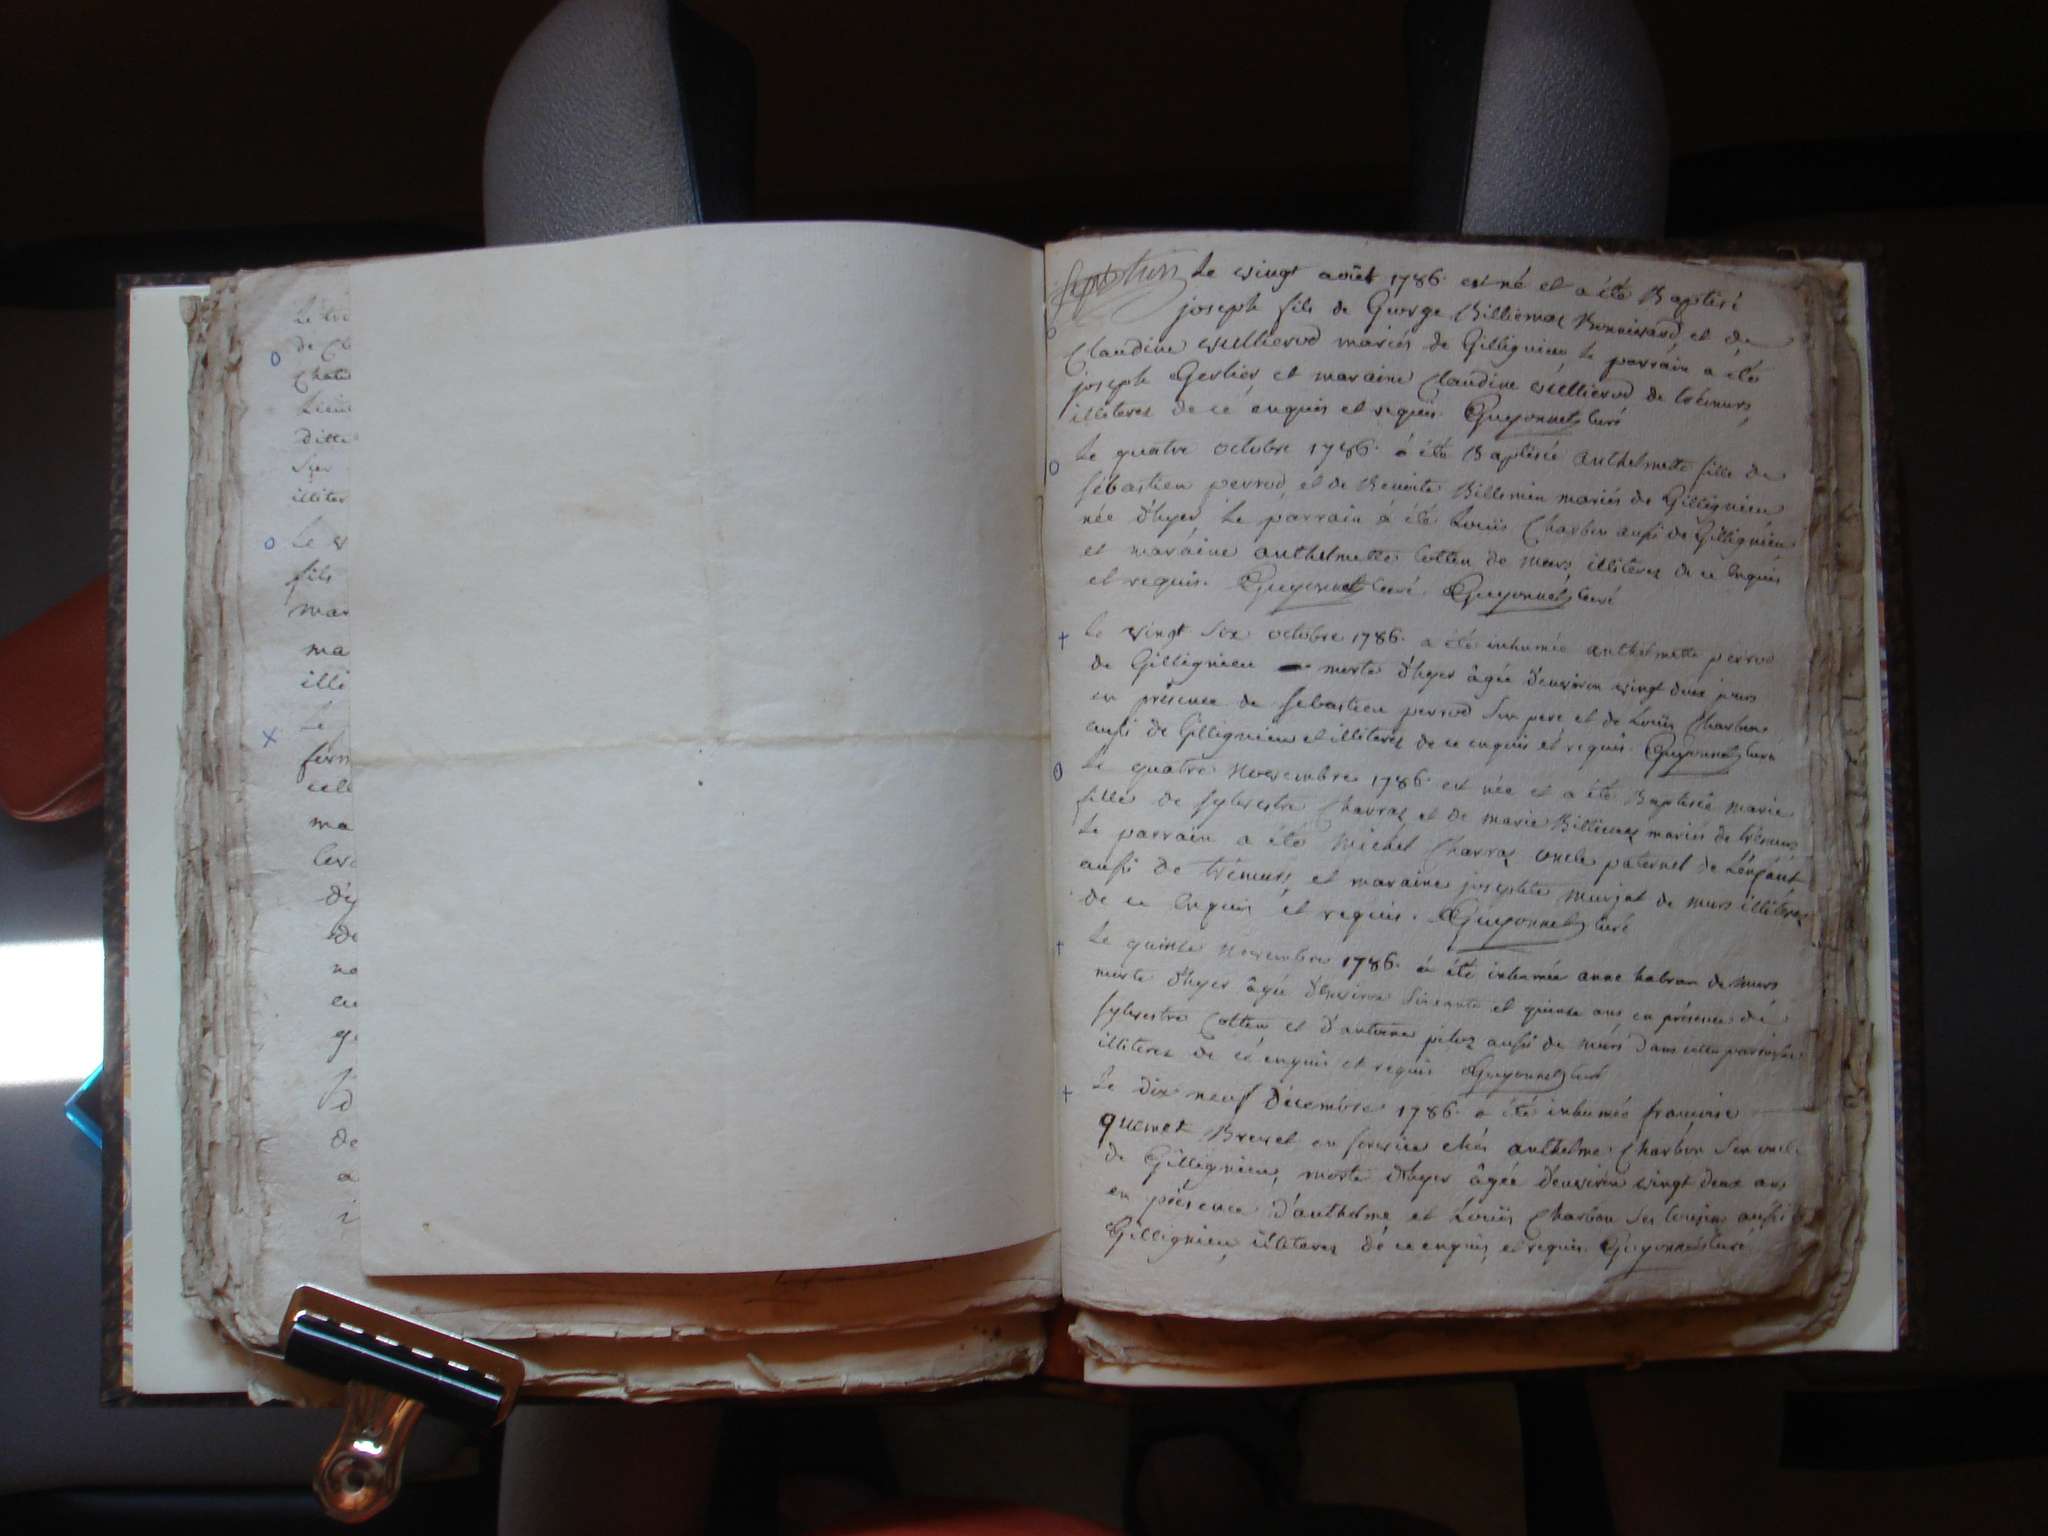 Le
de
illiter
Le
fils
mar
ma
illi
Le
ma
de
a
Le vingt août 1786. est né et a été Baptisé
joseph fils de George Billiemaz Bonnivard et de
Claudine vullierod mariés de Gillignieu le parrain a été
joseph Gerlier et maraine Claudine vullierod de trémurs
illiterez de cé enquis et requis. Guyonnet curé
Le quatre octobre 1786. a été Baptisée anthelmette fille de
sébastien perrod et de Benoite Billemin mariés de Gillignieu
née d'hyer, Le parrain a été Louis Charbon aussi de Gillignieu
et maraine anthelmette Cottin de murs illiterez de ce enquis
et requis. Guyonnet curé. Guyonnet curé
Le vingt six octobre 1786. a été inhumée anthelmette perrod
de Gillignieu morte d'hyer âgée d'environ vingt deux jours
en présence de sebastien perrod son pere et de Louis Charbon
aussi de Gillignieu et illiterez de ce enquis et requis. Guyonnet curé
Le quatre Novembre 1786. est née et a été Baptisée marie
fille de sylvestre Charraz et de marie Billiemaz mariés de trémurs
Le parrain a été michel Charraz oncle paternel de L'enfant
aussi de trémurs, et maraine josephte murjat de murs illiterez
de ce enquis et requis. Guyonnet curé
Le quinze Novembre 1786. a été inhumée anne habran de murs
morte d'hyer âgée d'environ soixante et quinze ans en présence de
sylvestre Cottin et d'antoine piloz aussi de murs dans cette parroisse
illiterez de cé enquis et requis Guyonnet curé
Le dix neuf décembre 1786. a été inhumée francoise
quemet Brevet en service chés anthelme Charbon son oncle
de Gillignieu, morte d'hyer âgée d'environ vingt deux ans
en présence d'anthelme et Louis Charbon ses cousin aussi de
Gillignieu, illiterez de ce enquis et requis. Guyonnet curé